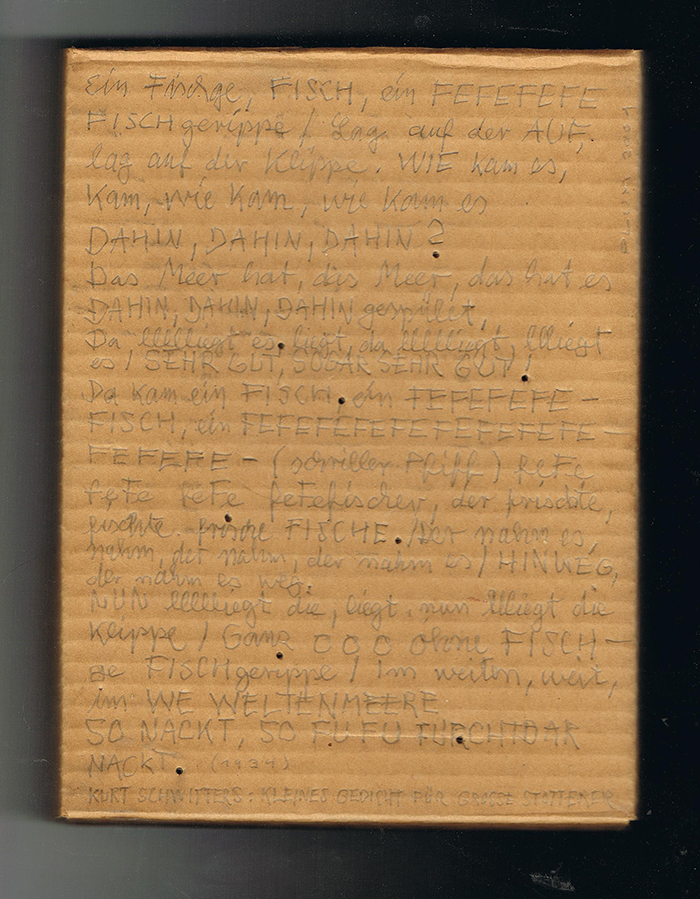 ein Fischge, FISCH, ein FEFEFEFE
FISCHgerippe / Lag auf der AUF,
lag auf der Klippe. WIE kam es,
kam, wie kam, wie kam es
DAHIN, DAHIN, DAHIN ?
Das Meer hat, das Meer, das hat es
DAHIN, DAHIN, DAHIN gespület,
Da llllliegt es, liegt, da llllliegt, llliegt
es / SEHR GUT, SOGAR SEHR GUT !
Da kam ein FISCH, ein FEFEFEFE –
FISCH, ein FEFEFEFEFEFEFEFEFE –
FEFEFE – (schriller Pfiff) feFe
feFe feFe feFefischer, der frischte,
fischte. frische FISCHE. / Der nahm es,
nahm, der nahm, der nahm es / HINWEG,
der nahm es weg.
NUN llllliegt die, liegt, nun llliegt die
Klippe / Ganz o o o ohne FISCH –
ge FISCHgerippe / Im weiten, weit,
im WE WELTENMEERE
SO NACKT, SO FU FU FURCHTBAR
NACKT. (1934)
KURT SCHWITTERS: KLEINES GEDICHT FÜR GROSSE STOTTERER